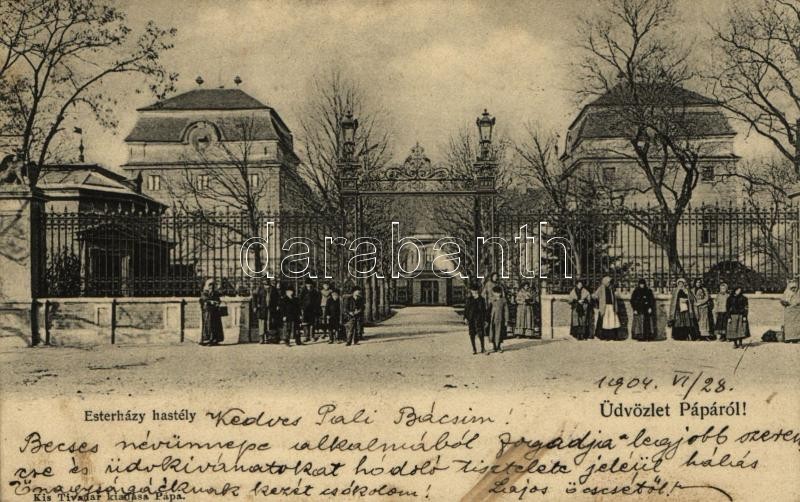 darabanth.com
1904. VI/28.
Esterházy hastély
Üdvözlet Pápáról!
Kedves Pali Bácsim!
Becses névünnepe alkalmából fogadja legjobb szeren
cse és üdvkivánatokat hódoló tisztelete jeléül hálás
Önagyságáéknak kezét csókolom! Lajos öcscsétől!
Kis Tivadar kiadása Pápa.